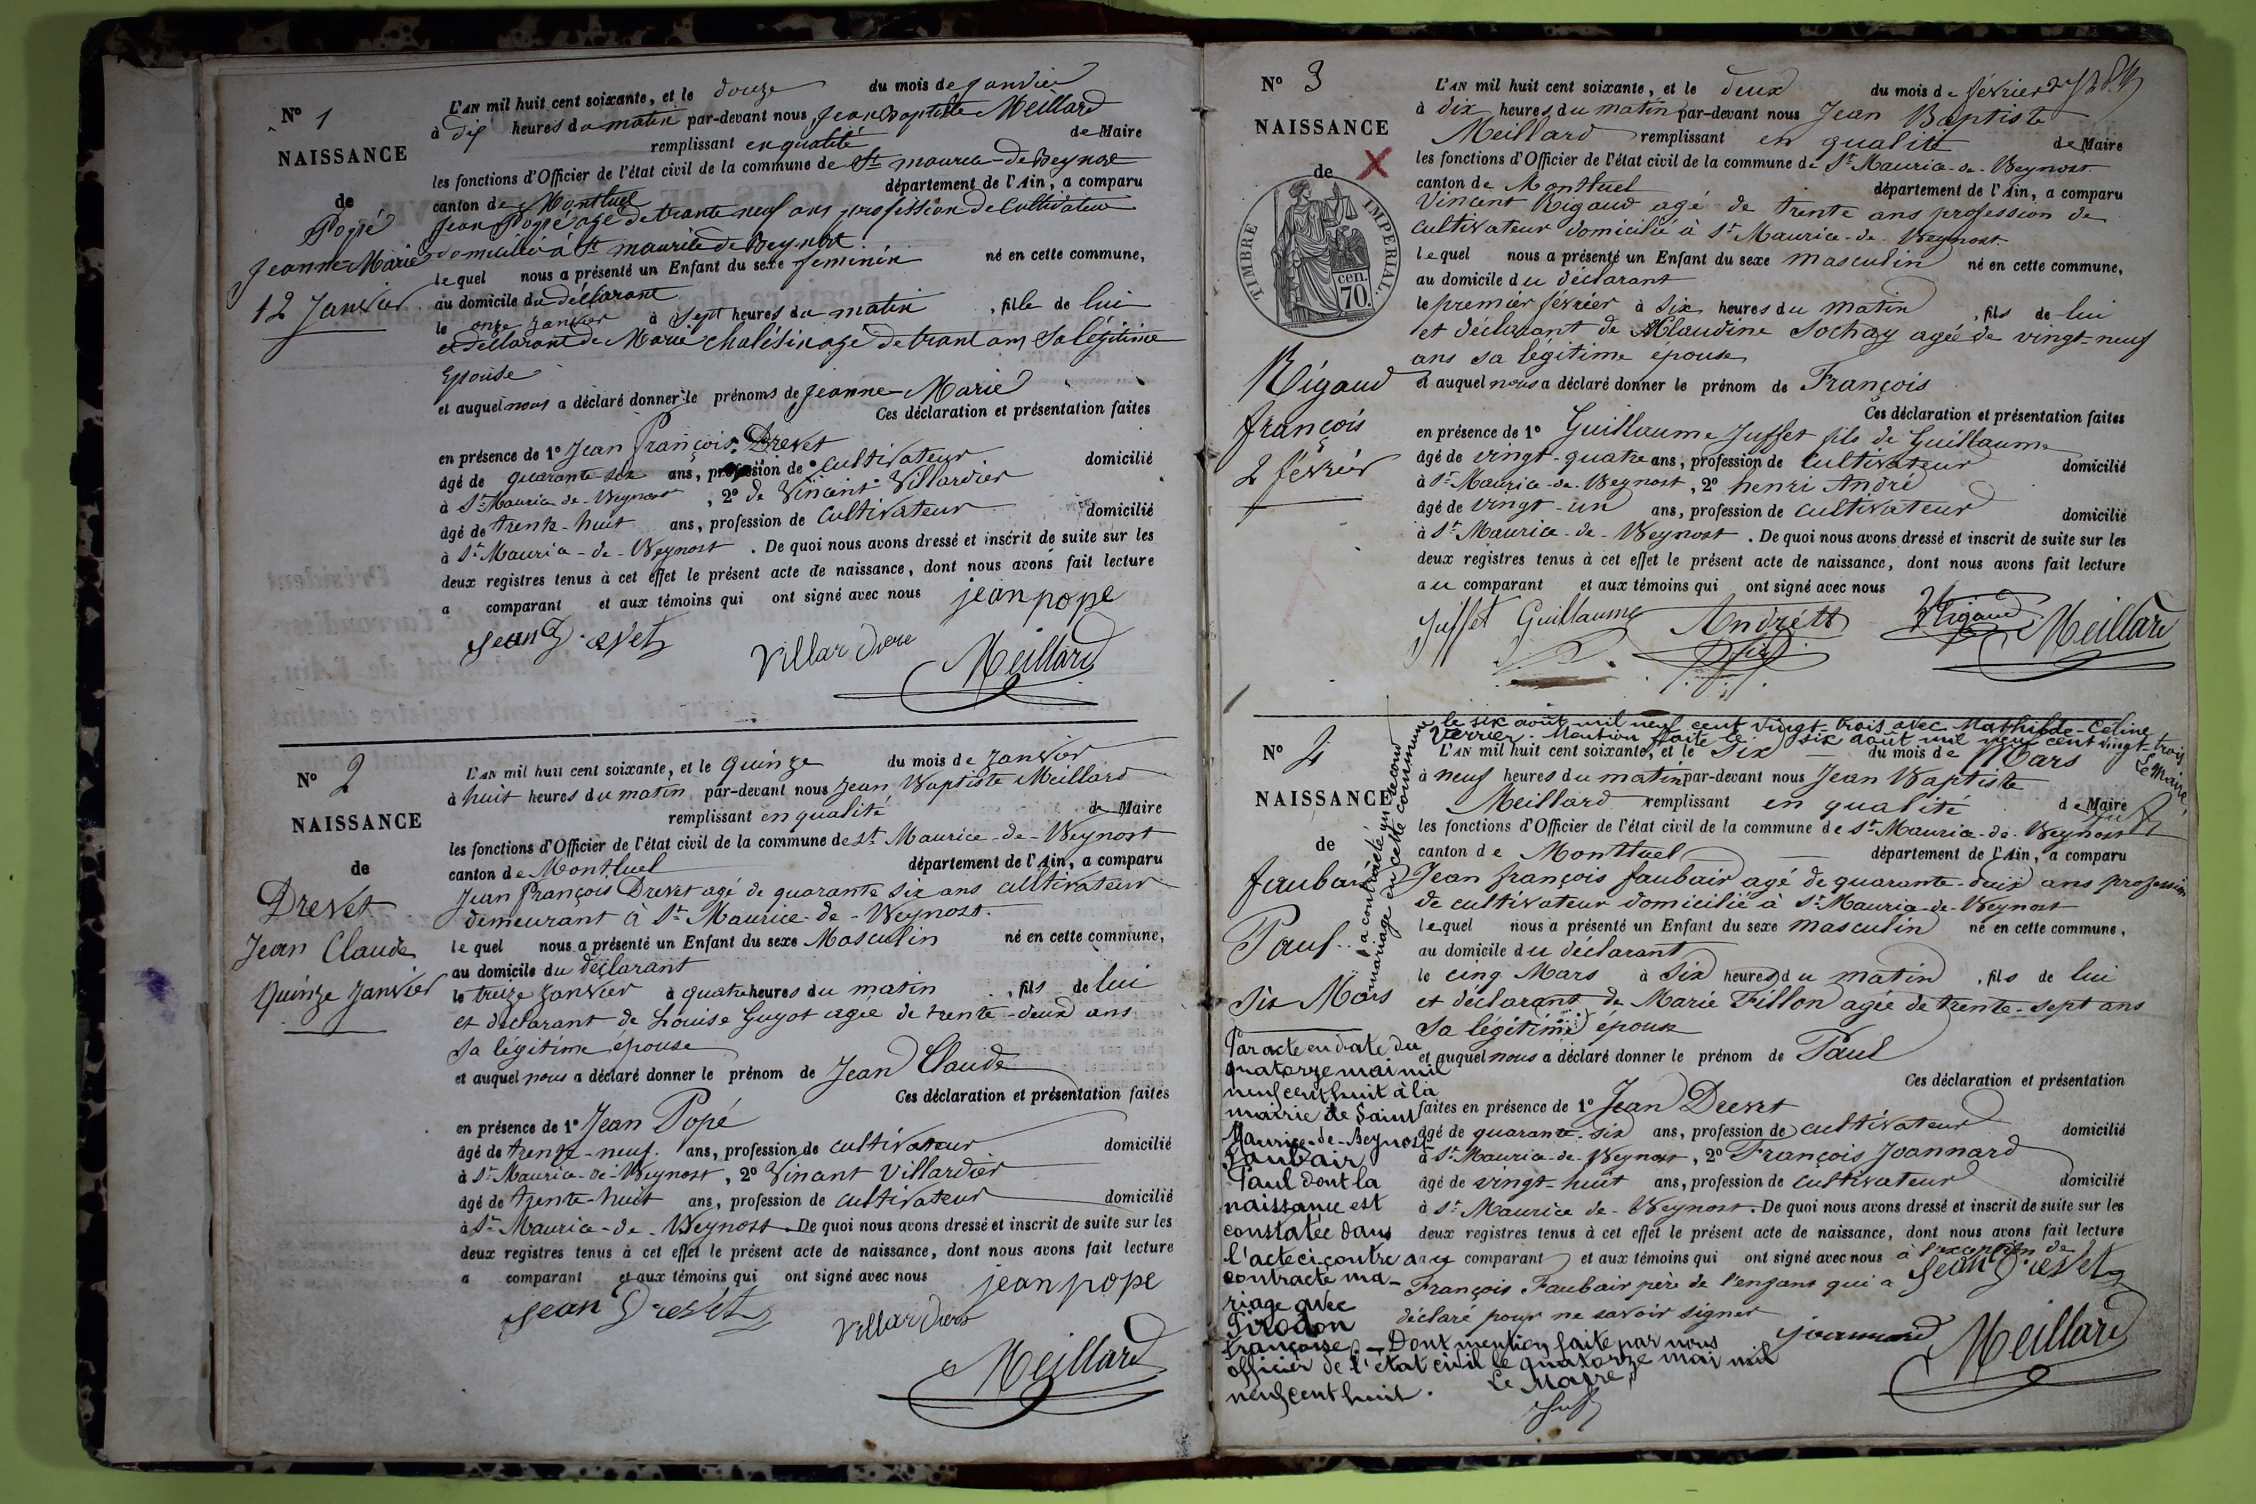 N° 1
NAISSANCE
de
Popé
Jeanne-Marie
12 Janvier
L'AN mil huit cent soixante, et le douze du mois de janvier
à dix heures du matin par-devant nous Jean Baptiste Meillard
remplissant en qualité de Maire
les fonctions d'Officier de l'état civil de la commune de St maurice-de Beynost
canton de Montluel département de l'Ain, a comparu
Jean Popé agé de trante neuf ans profession de Cultivateur
domicilié à St maurice de Beynost
lequel nous a présenté un Enfant du sexe feminin né en cette commune,
au domicile du déclarant
le onze janvier à sept heures du matin, fille de lui
et déclarant de Marie agé de trant ans Sa légitime
Epouse
et auquel nous a déclaré donner le prénoms de Jeanne-Marie
Ces déclaration et présentation faites
en présence de 1° Jean François Drevet
âgé de quarante six ans, profession de cultivateur domicilié
à St Maurice-de-Beynost, 2° de Vincent Villardier
âgé de trente-huit ans, profession de cultivateur domicilié
à St Maurice-de-Beynost. De quoi nous avons dressé et inscrit de suite sur les
deux registres tenus à cet effet le présent acte de naissance, dont nous avons fait lecture
a comparant et aux témoins qui ont signé avec nous jean pope
Jean Drevet Villardiere Meillard
N° 2
NAISSANCE
de
Drevet
Jean Claude
Quinze Janvier
L'AN mil huit cent soixante, et le quinze du mois de Janvier
à huit heures du matin par-devant nous Jean Baptiste Meillard
remplissant en qualité de Maire
les fonctions d'Officier de l'état civil de la commune de St Maurice-de-Beynost
canton de Montluel département de l'Ain, a comparu
Jean François Drevet agé de quarante six ans cultivateur
demeurant à St Maurice-de-Beynost.
lequel nous a présenté un Enfant du sexe Masculin né en cette commune,
au domicile du déclarant
le treize Janvier à quatre heures du matin, fils de lui
et déclarant de Louise Guyot agée de trente-deux ans
Sa légitime épouse
et auquel nous a déclaré donner le prénom de Jean Claude
Ces déclaration et présentation faites
en présence de 1° Jean Popé
âgé de trente-neuf ans, profession de cultivateur domicilié
à St Maurice-de-Beynost, 2° Vincent Villardier
âgé de trente-huit ans, profession de cultivateur domicilié
à St Maurice-de-Beynost. De quoi nous avons dressé et inscrit de suite sur les
deux registres tenus à cet effet le présent acte de naissance, dont nous avons fait lecture
a comparant et aux témoins qui ont signé avec nous jean pope
Jean Drevet Villardiere
Meillard
N° 3
NAISSANCE
de
TIMBRE IMPERIAL.
70 cen.
Rigaud
françois
2 février
L'AN mil huit cent soixante, et le deux du mois de février
à dix heures du matin par-devant nous Jean Baptiste
Meillard remplissant en qualité de Maire
les fonctions d'Officier de l'état civil de la commune de St Maurice-de-Beynost
canton de Montluel département de l'Ain, a comparu
Vincent Rigaud agé de trente ans profession de
cultivateur domicilié à St Maurice-de-Beynost
lequel nous a présenté un Enfant du sexe masculin né en cette commune,
au domicile du déclarant
le premier février à six heures du matin, fils de lui
et déclarant de Claudine Sochay agée de vingt-neuf
ans sa légitime épouse
et auquel nous a déclaré donner le prénom de François
Ces déclaration et présentation faites
en présence de 1° Guillaume Juffet fils de Guillaume
âgé de vingt-quatre ans, profession de cultivateur domicilié
à St Maurice-de-Beynost, 2° henri André
âgé de vingt-un ans, profession de cultivateur domicilié
à St Maurice-de-Beynost. De quoi nous avons dressé et inscrit de suite sur les
deux registres tenus à cet effet le présent acte de naissance, dont nous avons fait lecture
au comparant et aux témoins qui ont signé avec nous
Juffet Guillaume André Rigaud Meillard
le six août mil neuf cent vingt-trois avec Mathilde-Céline
Verrier. Mention faite le six août mil neuf cent vingt-trois
Le Maire,
N° 4
NAISSANCE
de
faubair
Paul
Six Mars
a contracté un second
mariage en cette commune
L'AN mil huit cent soixante, et le Six du mois de Mars
à neuf heures du matin par-devant nous Jean Baptiste
Meillard remplissant en qualité de Maire
les fonctions d'Officier de l'état civil de la commune de St Maurice-de-Beynost
canton de Montluel département de l'Ain, a comparu
Jean françois faubair agé de quarante-deux ans profession
de cultivateur domicilié à St Maurice-de-Beynost
lequel nous a présenté un Enfant du sexe masculin né en cette commune,
au domicile du déclarant
le cinq Mars à six heures du matin, fils de lui
et déclarant de Marie Trillon agée de trente-sept ans
Sa légitime épouse
et auquel nous a déclaré donner le prénom de Paul
Ces déclaration et présentation
faites en présence de 1° Jean Drevet
âgé de quarante-six ans, profession de cultivateur domicilié
à St Maurice-de-Beynost, 2° François Joannard
âgé de vingt-huit ans, profession de cultivateur domicilié
à St Maurice-de-Beynost. De quoi nous avons dressé et inscrit de suite sur les
deux registres tenus à cet effet le présent acte de naissance, dont nous avons fait lecture
au comparant et aux témoins qui ont signé avec nous à l'exception de
François Faubair père de l'enfant qui a Jean Drevet
déclaré pour ne savoir signer
joannard Meillard
Par acte en date du
quatorze mai mil
neuf cent huit à la
mairie de Saint
Maurice-de-Beynost
Faubair
Paul dont la
naissance est
constatée dans
l'acte ci-contre a
contracté ma-
riage avec
Girodon
Françoise. Dont mention faite par nous
officier de l'état civil le quatorze mai mil
neuf cent huit. Le Maire,